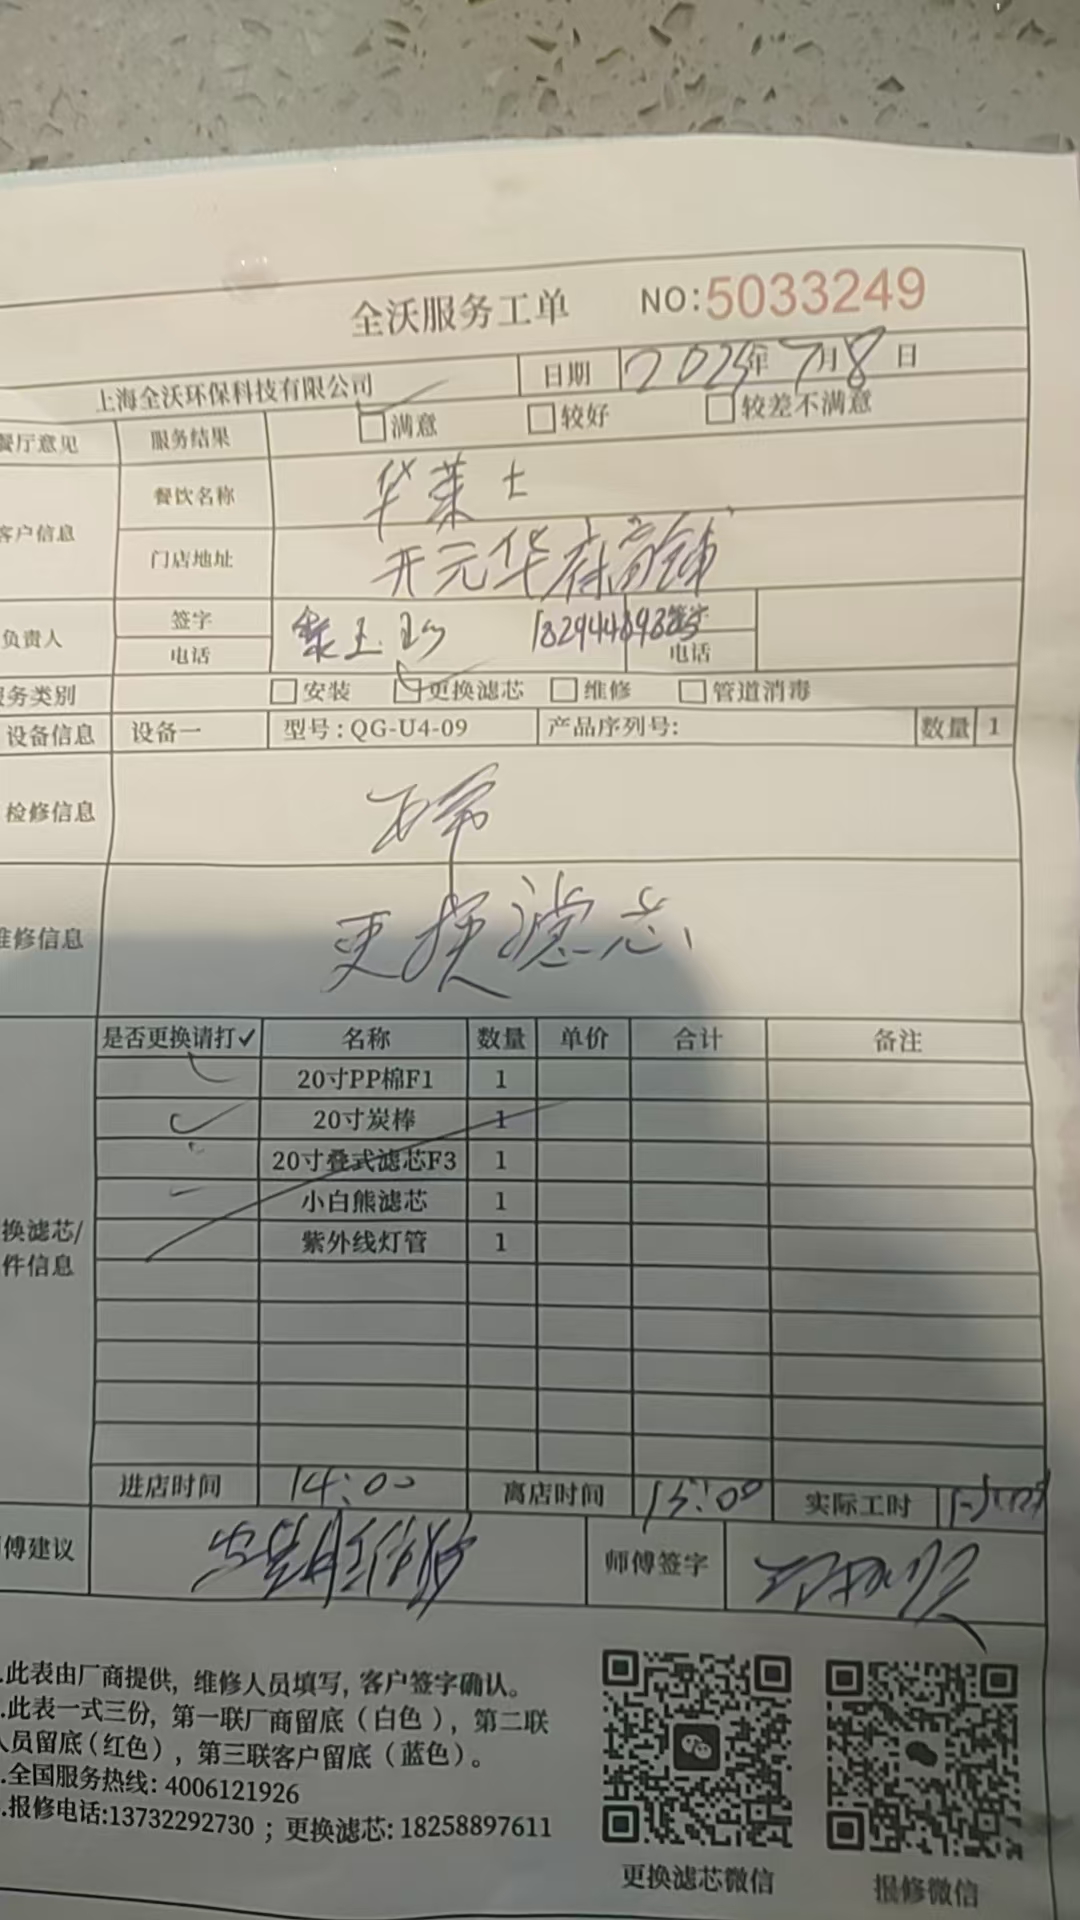 全沃服务工单 NO:5033249
上海全沃环保科技有限公司 日期 2025年7月8日
餐厅意见 服务结果 满意 较好 较差不满意
客户信息 餐饮名称 华莱士
门店地址 开元华府商铺
负责人 签字
电话 电话
服务类别 安装 更换滤芯 维修 管道消毒
设备信息 设备一 型号:QG-U4-09 产品序列号: 数量 1
检修信息 正常
维修信息 更换滤芯
是否更换请打✓ 名称 数量 单价 合计 备注
20寸PP棉F1 1
20寸炭棒 1
20寸叠式滤芯F3 1
小白熊滤芯 1
紫外线灯管 1
换滤芯/
件信息
进店时间 14:00 离店时间 15:00 实际工时
师傅建议 师傅签字
.此表由厂商提供，维修人员填写，客户签字确认。
.此表一式三份，第一联厂商留底（白色），第二联
人员留底（红色），第三联客户留底（蓝色）。
.全国服务热线: 4006121926
.报修电话:13732292730 ；更换滤芯: 18258897611
更换滤芯微信 报修微信